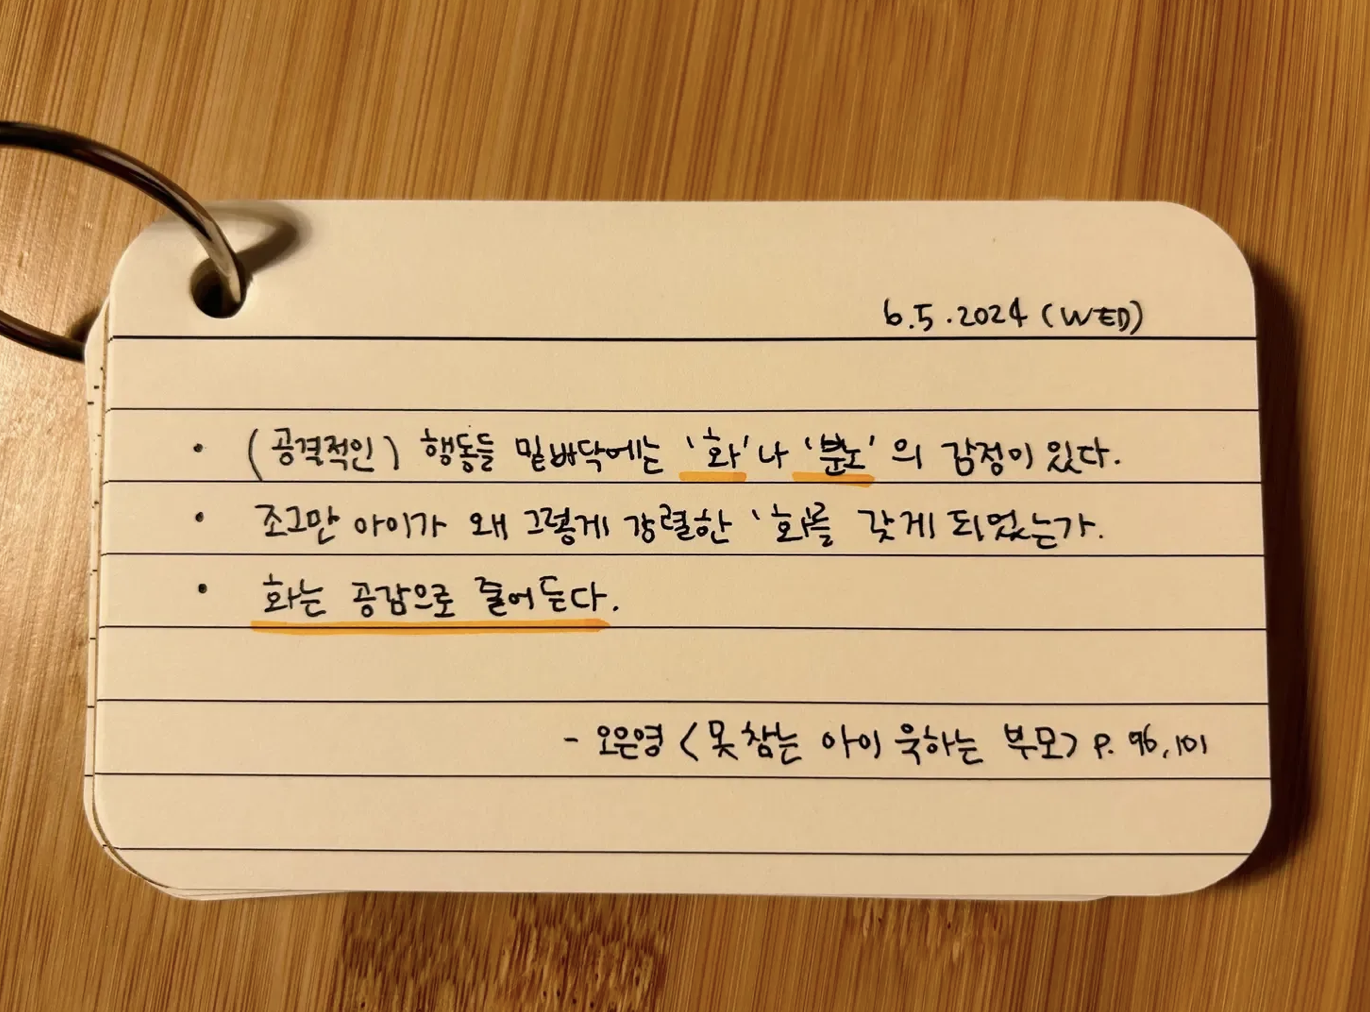 6.5.2024 (WED)
• (공격적인) 행동들 밑바닥에는 '화'나 '분노'의 감정이 있다.
• 조그만 아이가 왜 그렇게 강렬한 '화'를 갖게 되었는가.
• 화는 공감으로 줄어든다.
- 오은영 <못 참는 아이 욱하는 부모> p. 96, 101